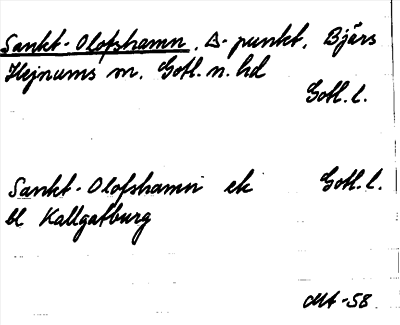 Sankt-Olofshamn, Δ-punkt, Bjärs
Hejnums sn, Gotl. n. hd
Gotl. l.
Sankt-Olofshamn ek Gotl. l.
bl Kallgatburg